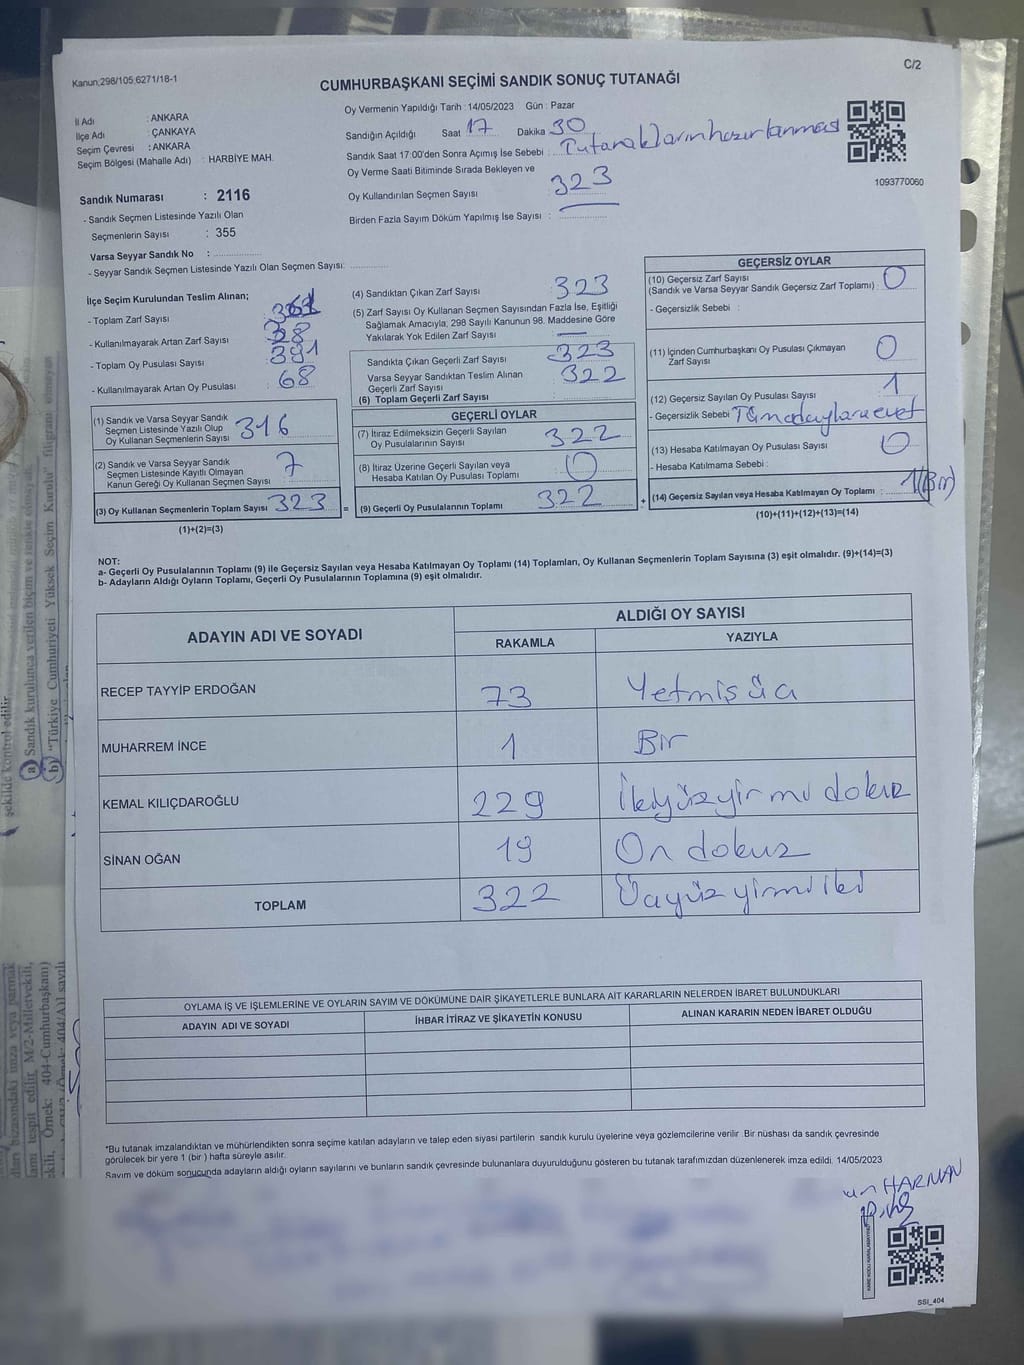 Kanun;298/105,6271/18-1
C/2
CUMHURBAŞKANI SEÇİMİ SANDIK SONUÇ TUTANAĞI
İl Adı : ANKARA
İlçe Adı : ÇANKAYA
Seçim Çevresi : ANKARA
Seçim Bölgesi (Mahalle Adı) : HARBİYE MAH.
Sandık Numarası : 2116
- Sandık Seçmen Listesinde Yazılı Olan
Seçmenlerin Sayısı : 355
Varsa Seyyar Sandık No :
- Seyyar Sandık Seçmen Listesinde Yazılı Olan Seçmen Sayısı:
Oy Vermenin Yapıldığı Tarih : 14/05/2023 Gün : Pazar
Sandığın Açıldığı Saat 17 Dakika 30
Sandık Saat 17:00'den Sonra Açımış İse Sebebi : Tutanakların hazırlanması
Oy Verme Saati Bitiminde Sırada Bekleyen ve
Oy Kullandırılan Seçmen Sayısı 323
Birden Fazla Sayım Döküm Yapılmış İse Sayısı :
1093770060
İlçe Seçim Kurulundan Teslim Alınan;
- Toplam Zarf Sayısı :
- Kullanılmayarak Artan Zarf Sayısı : 38
- Toplam Oy Pusulası Sayısı : 391
- Kullanılmayarak Artan Oy Pusulası : 68
(1) Sandık ve Varsa Seyyar Sandık
Seçmen Listesinde Yazılı Olup
Oy Kullanan Seçmenlerin Sayısı 316
(2) Sandık ve Varsa Seyyar Sandık
Seçmen Listesinde Kayıtlı Olmayan
Kanun Gereği Oy Kullanan Seçmen Sayısı 7
(3) Oy Kullanan Seçmenlerin Toplam Sayısı 323 =
(1)+(2)=(3)
(4) Sandıktan Çıkan Zarf Sayısı 323
(5) Zarf Sayısı Oy Kullanan Seçmen Sayısından Fazla İse, Eşitliği
Sağlamak Amacıyla; 298 Sayılı Kanunun 98. Maddesine Göre
Yakılarak Yok Edilen Zarf Sayısı —
Sandıkta Çıkan Geçerli Zarf Sayısı 323
Varsa Seyyar Sandıktan Teslim Alınan
Geçerli Zarf Sayısı 322
(6) Toplam Geçerli Zarf Sayısı
GEÇERLİ OYLAR
(7) İtiraz Edilmeksizin Geçerli Sayılan
Oy Pusulalarının Sayısı 322
(8) İtiraz Üzerine Geçerli Sayılan veya
Hesaba Katılan Oy Pusulası Toplamı 0
(9) Geçerli Oy Pusulalarının Toplamı 322 +
GEÇERSİZ OYLAR
(10) Geçersiz Zarf Sayısı
(Sandık ve Varsa Seyyar Sandık Geçersiz Zarf Toplamı) : 0
- Geçersizlik Sebebi :
(11) İçinden Cumhurbaşkanı Oy Pusulası Çıkmayan
Zarf Sayısı 0
(12) Geçersiz Sayılan Oy Pusulası Sayısı 1
- Geçersizlik Sebebi Tüm adaylara evet
(13) Hesaba Katılmayan Oy Pusulası Sayısı 0
- Hesaba Katılmama Sebebi :
(14) Geçersiz Sayılan veya Hesaba Katılmayan Oy Toplamı : 1 (Bir)
(10)+(11)+(12)+(13)=(14)
NOT:
a- Geçerli Oy Pusulasının Toplamı (9) ile Geçersiz Sayılan veya Hesaba Katılmayan Oy Toplamı (14) Toplamları, Oy Kullanan Seçmenlerin Toplam Sayısına (3) eşit olmalıdır. (9)+(14)=(3)
b- Adayların Aldığı Oyların Toplamı, Geçerli Oy Pusulalarının Toplamına (9) eşit olmalıdır.
ADAYIN ADI VE SOYADI
ALDIĞI OY SAYISI
RAKAMLA YAZIYLA
RECEP TAYYİP ERDOĞAN 73 Yetmiş üç
MUHARREM İNCE 1 Bir
KEMAL KILIÇDAROĞLU 229 İkiyüzyirmi dokuz
SİNAN OĞAN 19 On dokuz
TOPLAM 322 Üçyüz yirmi iki
OYLAMA İŞ VE İŞLEMLERİNE VE OYLARIN SAYIM VE DÖKÜMÜNE DAİR ŞİKAYETLERLE BUNLARA AİT KARARLARIN NELERDEN İBARET BULUNDUKLARI
ADAYIN ADI VE SOYADI İHBAR İTİRAZ VE ŞİKAYETİN KONUSU ALINAN KARARIN NEDEN İBARET OLDUĞU
*Bu tutanak imzalandıktan ve mühürlendikten sonra seçime katılan adayların ve talep eden siyasi partilerin sandık kurulu üyelerine veya gözlemcilerine verilir. Bir nüshası da sandık çevresinde
görülecek bir yere 1 (bir) hafta süreyle asılır.
Sayım ve döküm sonucunda adayların aldığı oyların sayılarını ve bunların sandık çevresinde bulunanlara duyurulduğunu gösteren bu tutanak tarafımızdan düzenlenerek imza edildi. 14/05/2023
HARMAN
SSI_404
şekilde kontrol edilir
a) Sandık kurulunca verilen biçim ve renkte olmayan
b) "Türkiye Cumhuriyeti Yüksek Seçim Kurulu" filigranı olmayan